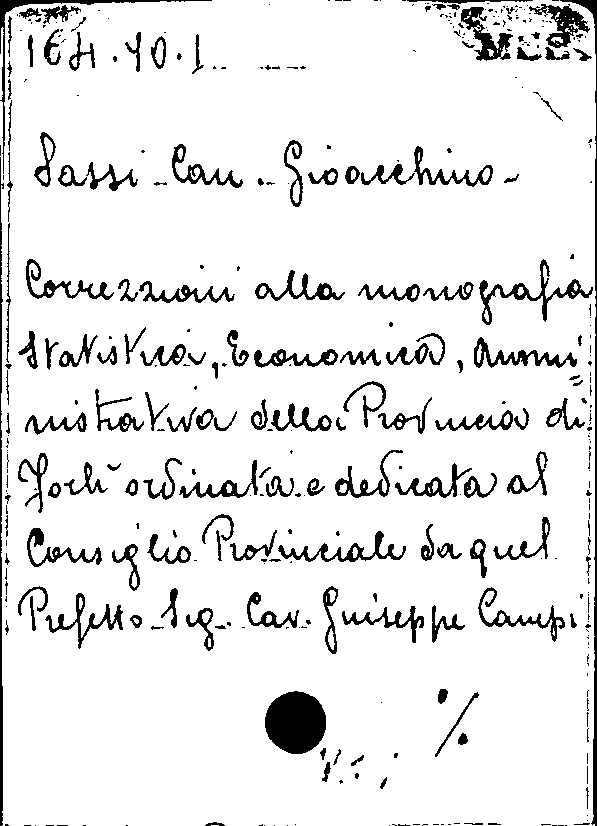 164.70.1
MSS.
Sassi Can. Gioacchino
Correzzioni alla monografia
Statistica, Economica, Ammi=
nistrativa della Provincia di
Forlì ordinata e dedicata al
Consiglio Provinciale da quel
Prefetto Sig. Cav. Giuseppe Campi
%